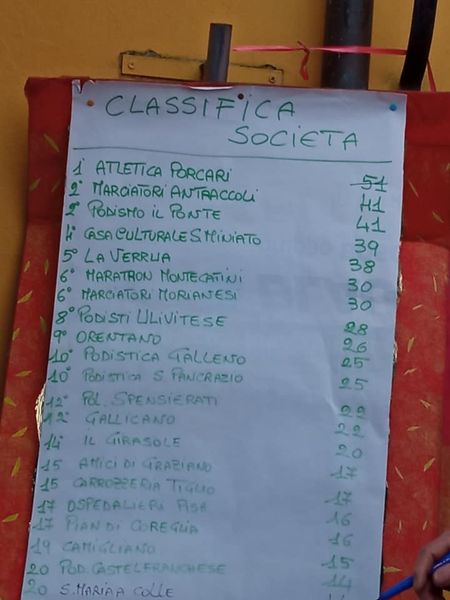 CLASSIFICA
SOCIETA
1° ATLETICA PORCARI 51
2° MARCIATORI ANTRACCOLI 41
2° PODISMO IL PONTE 41
4° CASA CULTURALE S MINIATO 39
5° LA VERRUA 38
6° MARATRON MONTECATINI 30
6° MARCIATORI MORIANESI 30
8° PODISTI ULIVITESE 28
9° ORENTANO 26
10° PODISTICA GALLENO 25
10° PODISTICA S. PANCRAZIO 25
12° POL. SPENSIERATI 22
12° GALLICANO 22
14° IL GIRASOLE 20
15 AMICI DI GRAZIANO 17
15 CARROZZERIA TIGLIO 17
17 OSPEDALIERI PISA 16
17 PIAN DI COREGLIA 16
19 CAMIGLIANO 15
20 POD. CASTELFRANCHESE 14
20 S. MARIA A COLLE